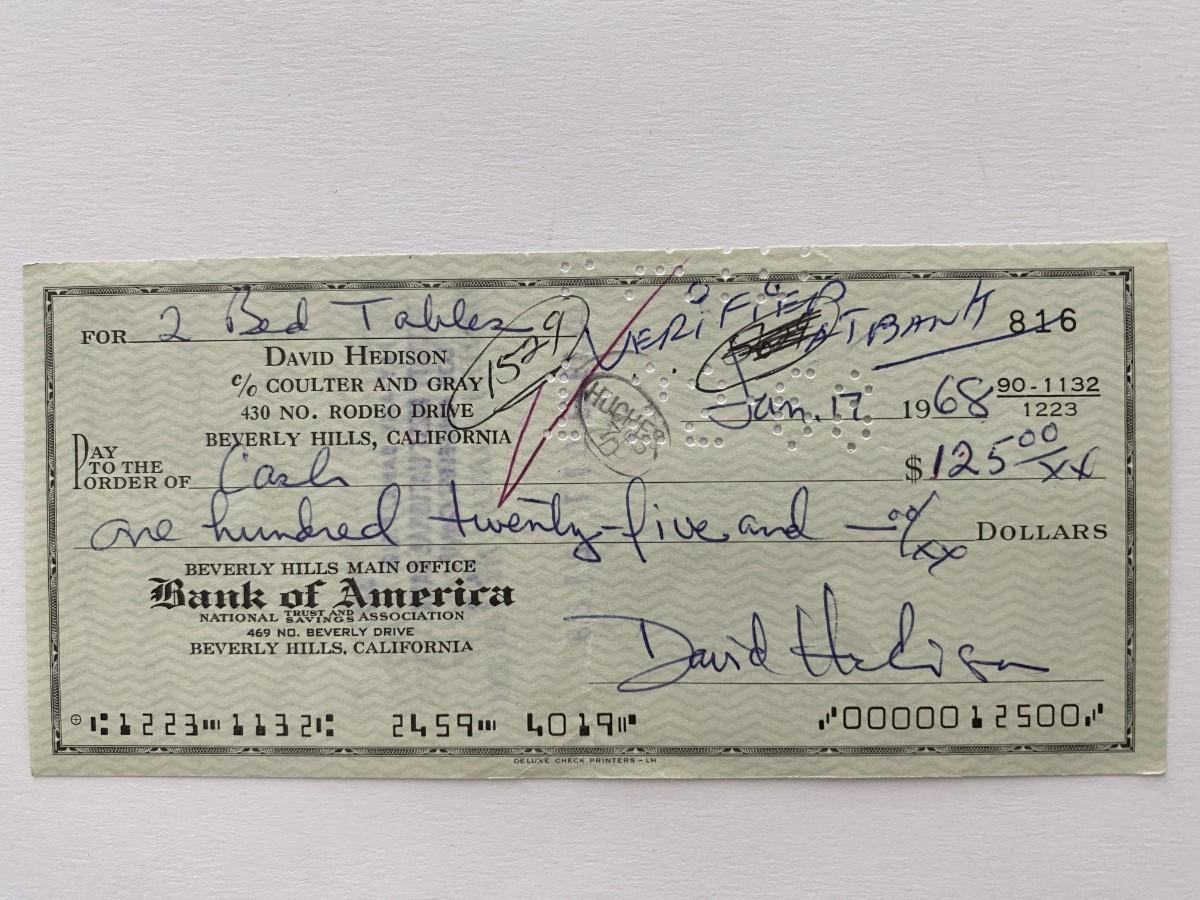 VERIFIED
AT BANK
816
FOR 2 Bed Tables
1529
DAVID HEDISON
c/o COULTER AND GRAY
430 NO. RODEO DRIVE
BEVERLY HILLS, CALIFORNIA
HUGHES
Jan. 17 1968
90-1132
1223
PAY TO THE ORDER OF Cash $125 00/xx
one hundred twenty-five and — 00/xx DOLLARS
BEVERLY HILLS MAIN OFFICE
Bank of America
NATIONAL TRUST AND SAVINGS ASSOCIATION
469 NO. BEVERLY DRIVE
BEVERLY HILLS, CALIFORNIA
David Hedison
⑆1223⑉1132⑆ 2459⑉ 4019⑈ ⑇0000012500⑇
DELUXE CHECK PRINTERS - LH